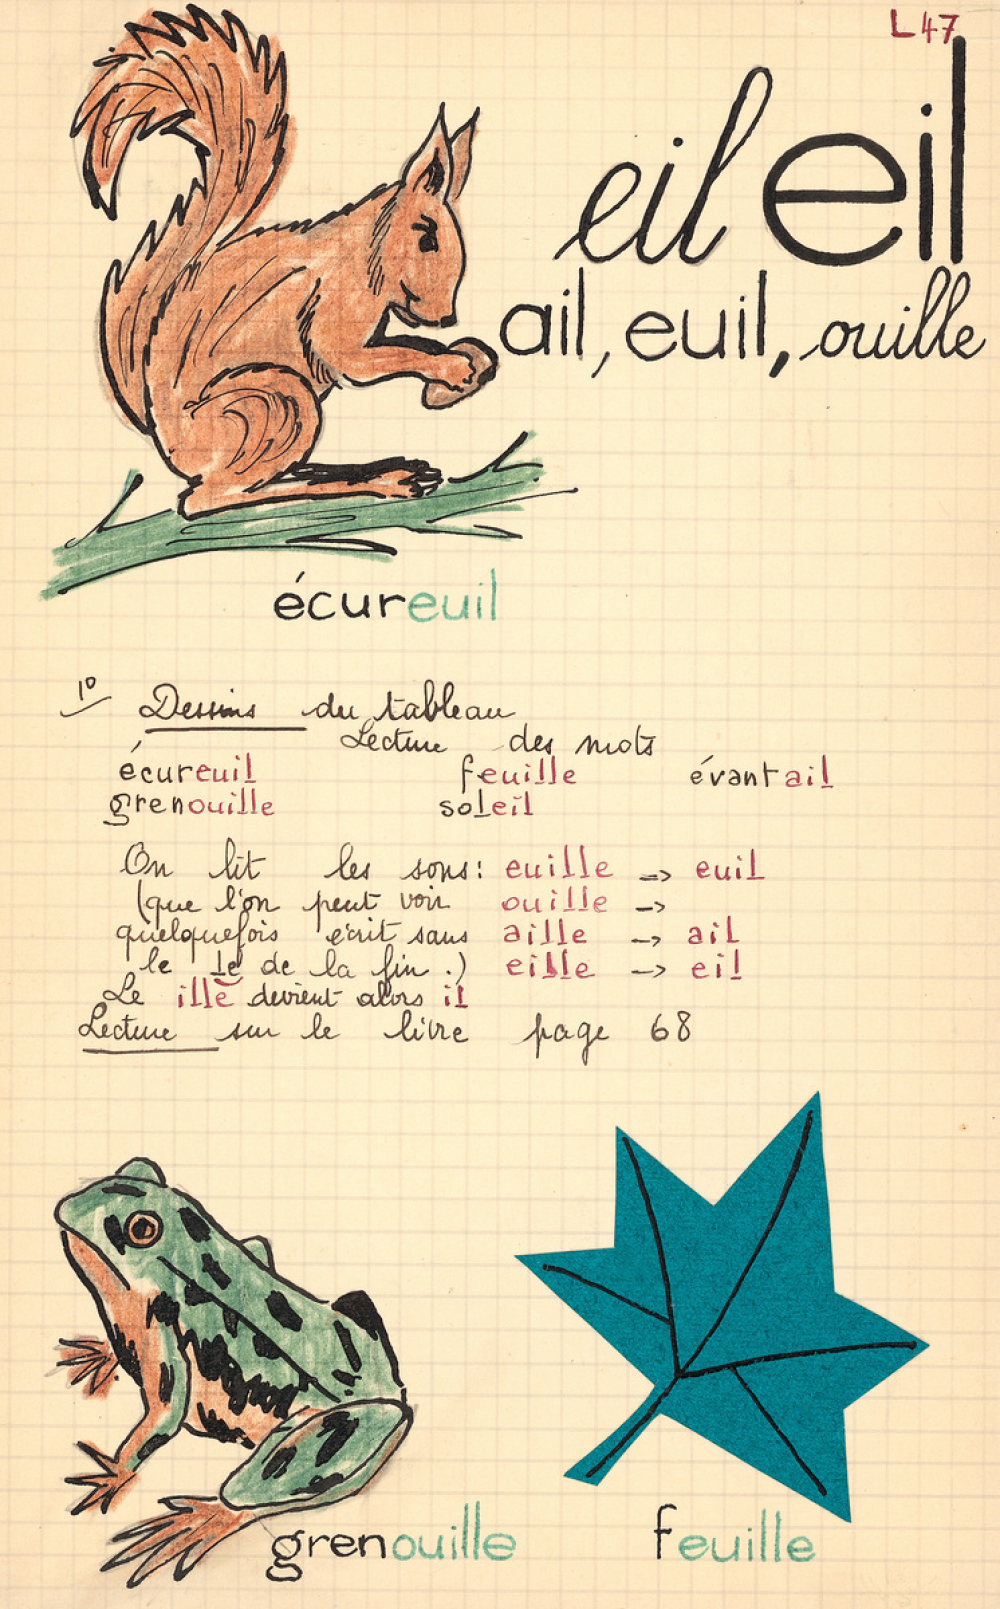 L47
eil eil
ail, euil, ouille
écureuil
1° Dessins du tableau
Lecture des mots
écureuil feuille évantail
grenouille soleil
On lit les sons : euille -> euil
(que l'on peut voir ouille ->
quelquefois écrit sans aille -> ail
le le de la fin.) eille -> eil
Le ille devient alors il
Lecture sur le livre page 68
grenouille feuille